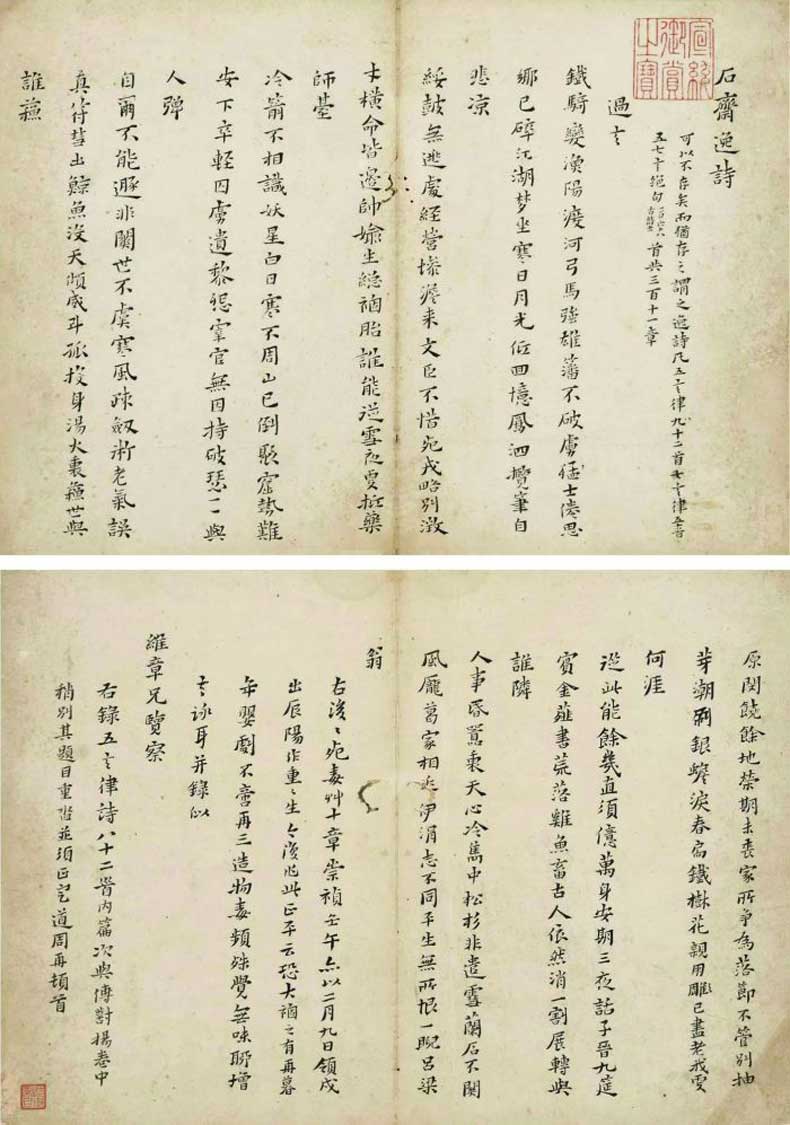 石齋逸詩
可以不存矣而猶存之謂之逸詩凡五言律九十二首七言律
五七言絕句 首共三百十一章
過之
鐵騎變漁陽渡河弓馬強雄藩不破虜猛士倦思
鄉已碎江湖夢坐寒日月光低回憶鳳泗攬筆自
悲涼
綏鼓無逃處經營慘澹來文臣不惜死戎略別激
才橫命皆邊帥媮生總禍胎誰能逆雪夜更
師臺
冷箭不相識妖星白日寒不周山已倒聚窟勢難
安下卒輕囚虜遺黎怨宰官無因持破瑟一一與
人彈
自爾不能遯非關世不虞寒風疎劍術老氣誤
真符彗出鯨魚沒天傾威斗孤投身湯火裏蘓世與
誰蘓
原閔饒餘地榮期未喪家所爭為落節不管別抽
芽潮刷銀蟾淚春扃鐵樹花親用雕已盡老我更
何涯
從此能餘幾直須億萬身安期三夜話子晉九筵
賓金薤書荒落雞魚畜古人依然消一割展轉與
誰隣
人事昏囂裏天心冷雋中松杉非遣雪蘭茝不關
風龐葛家相近伊涓志不同平生無所恨一睨呂梁
翁
右後後死毒艸十章崇禎壬午亦以二月九日領戍
出辰陽作重重生今後此正平云恐大禍之有再暮
年嬰劇不啻再三造物毒頻殊覺無味聊增
言詠耳并錄似
維章兄覽察
右錄五言律詩八十二首內篇次與傳對揚卷中
稍別其題目重沓並須正定道周再頓首